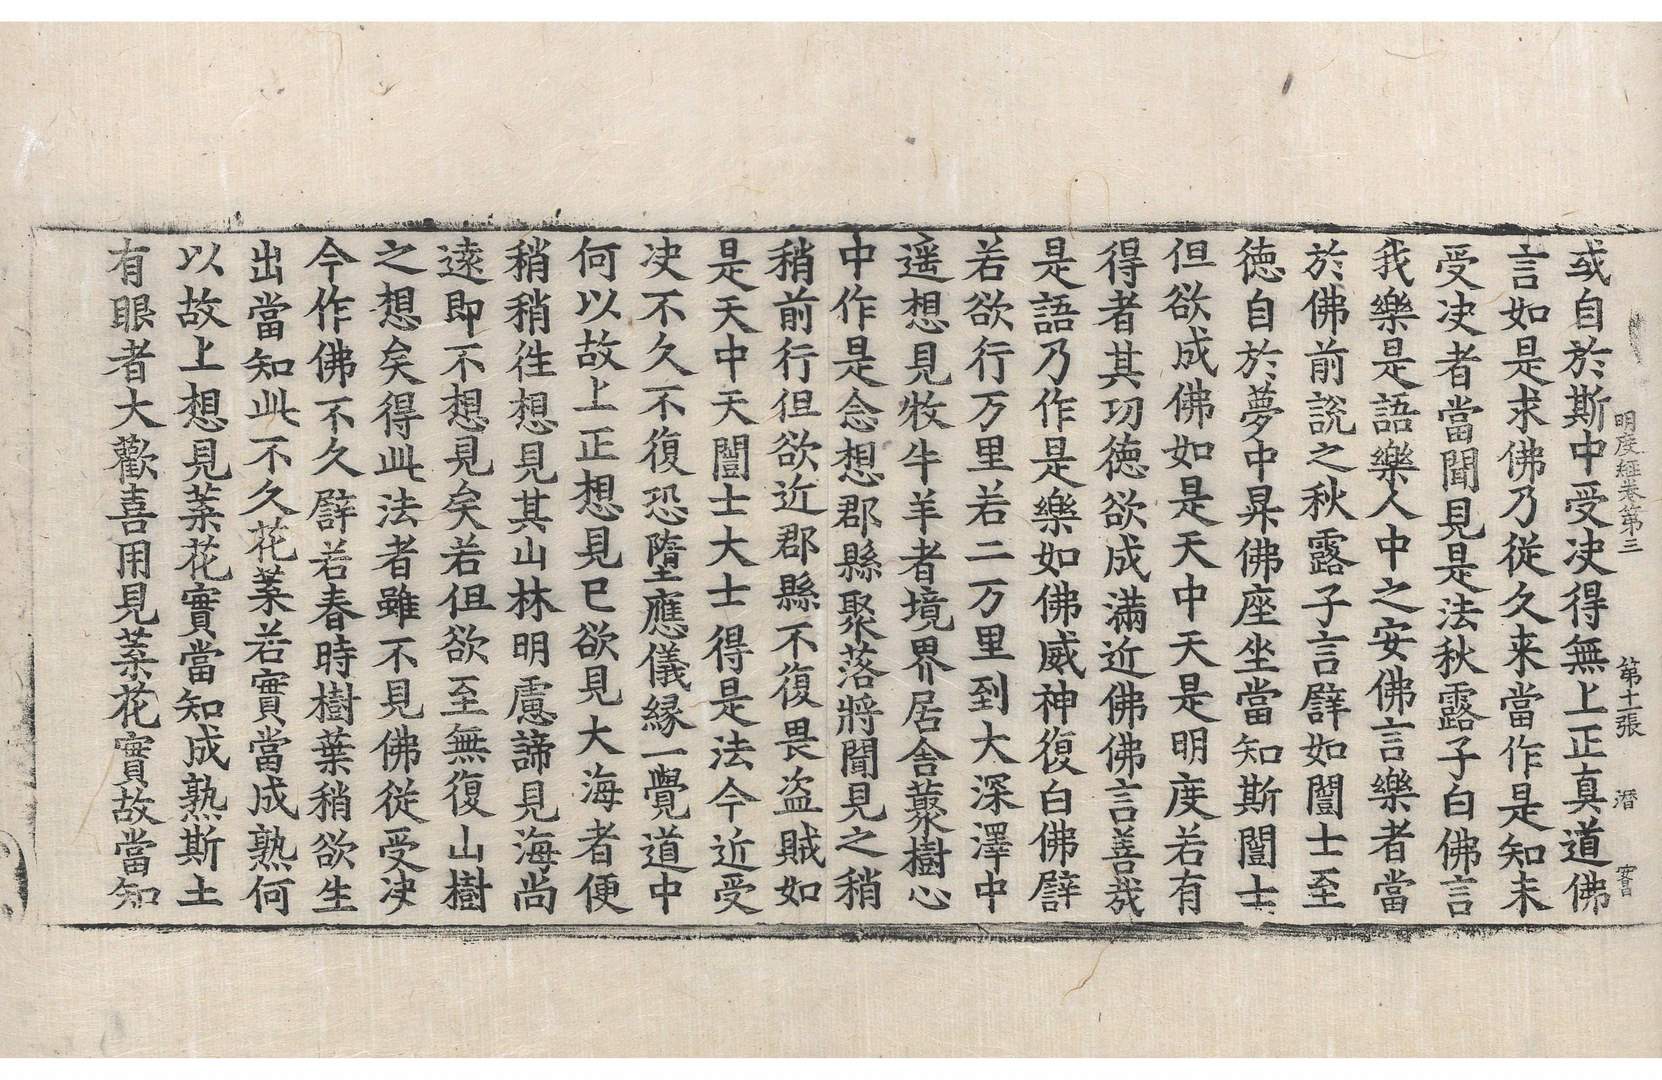 明度經卷第三　第十一張　潛
或自於斯中受决得無上正真道佛
言如是求佛乃從久来當作是知未
受决者當聞見是法秋露子白佛言
我樂是語樂人中之安佛言樂者當
於佛前說之秋露子言譬如闓士至
徳自於夢中昇佛座坐當知斯闓士
但欲成佛如是天中天是明度若有
得者其功徳欲成滿近佛佛言善哉
是語乃作是樂如佛威神復白佛譬
若欲行万里若二万里到大深澤中
遥想見牧牛羊者境界居舎藂樹心
中作是念想郡縣聚落將聞見之稍
稍前行但欲近郡縣不復畏盗賊如
是天中天闓士大士得是法今近受
决不久不復恐墮應儀縁一覺道中
何以故上正想見已欲見大海者便
稍稍徃想見其山林明慮諦見海尚
逺即不想見矣若但欲至無復山樹
之想矣得此法者雖不見佛從受决
今作佛不久譬若春時樹葉稍欲生
出當知此不久花葉若實當成熟何
以故上想見葉花實當知成熟斯土
有眼者大歡喜用見葉花實故當知